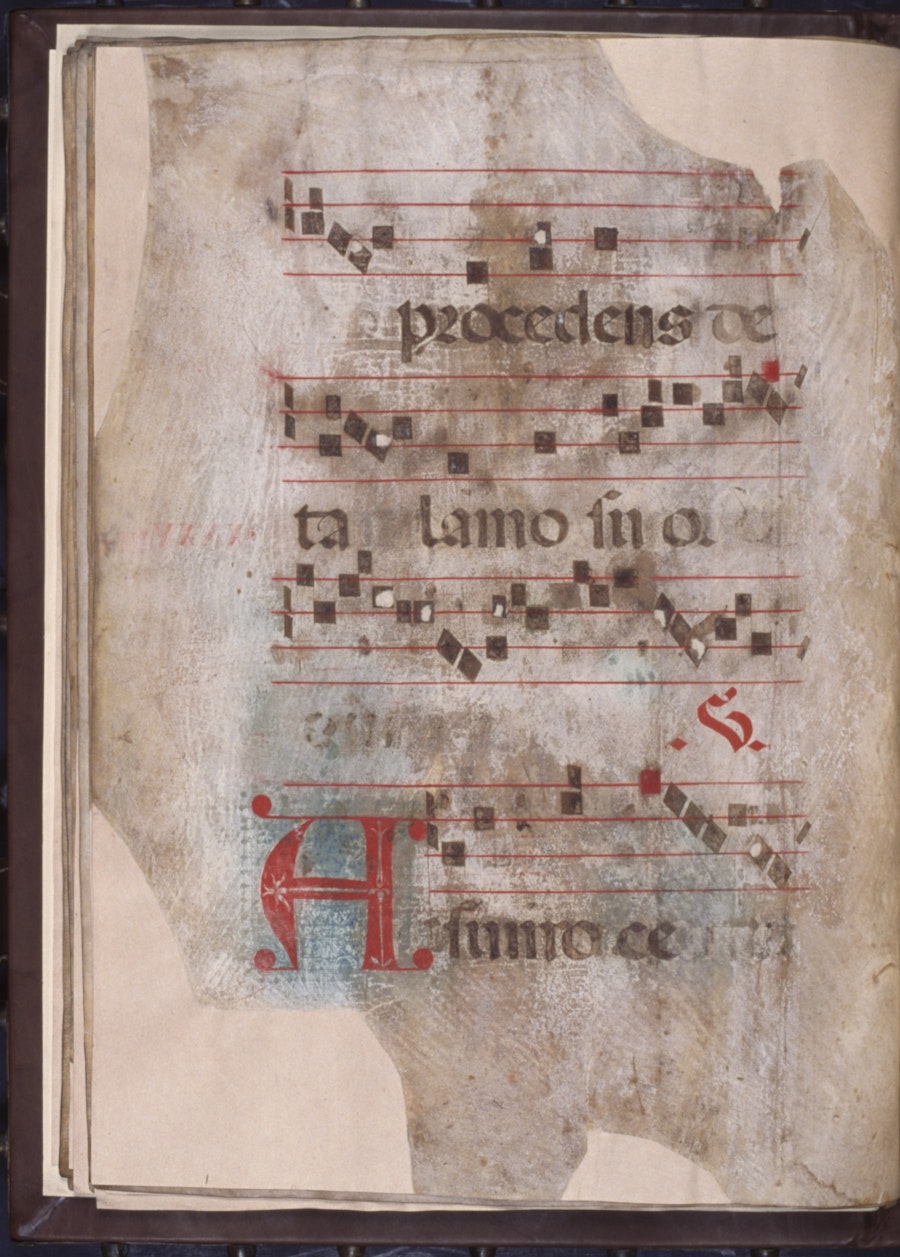 procedens de
ta lamo su o.
.S.
A summo ce